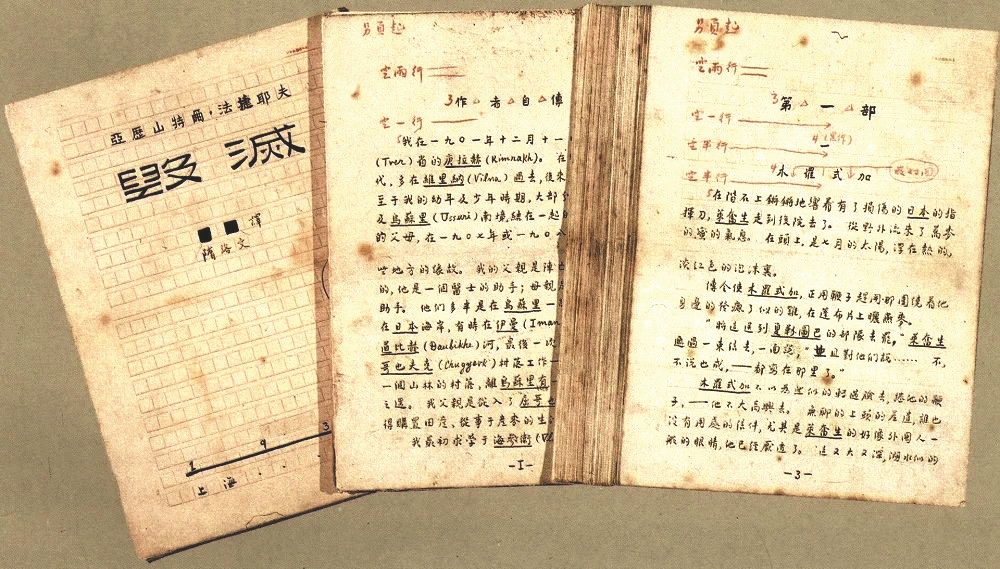 亞歷山特爾,法捷耶夫
毀滅
■■ 譯
隋洛文
1 9 3
上海
另頁起
空兩行
3作△者△自△傳
空一行
我在一九〇一年十二月十一
(Tver)省的庚拉赫(Kimrakh)。在
代,多在維里納(Vilna)過去,後來
至于我的幼年及少年時期,大部
及烏蘇里(Ussuri)南境,結在一起
的父母,在一九〇七年或一九〇八
些地方的緣故。我的父親是陣
的,他是一個醫士的助手;母親
助手。他們多半是在烏蘇里一
在日本海岸,有時在伊曼(Iman
過比赫(Daubikhe)河,最後一次
哥也夫克(Chuguevk)村落工作
一個山林的村落,離烏蘇里有
之遥。我父親是從入了屈哥也
得購置田産,從事于産麥的生
我最初求學于海參衛(Vl
-1-
另頁起
空兩行
3第△一△部
空一行
4(黑体)
空半行 一
空半行 4木羅式加
在階石上鏘鏘地響着有了損傷的日本的指
揮刀,萊奮生走到後院去了。從野外流來了蕎麥
的蜜的氣息。在頭上,是七月的太陽,浮在熱的,
淡紅色的泡沫裏。
傳令使木羅式加,正用鞭子趕開那圍繞着他
的發瘋了似的雞,在蓬布片上曬燕麥。
“將這送到夏勒圖巴的部隊去罷,”萊奮生
遞過一束信去,一面説,“並且對他們説……不,
不説也成,——都寫在那里了。”
木羅式加不以為然似的轉過臉去,捲他的鞭
子,——他不大高興去。無聊的上頭的差遣,誰也
没有用處的信件,尤其是萊奮生的好像外國人一
般的眼睛,他已經厭透了。這又大又深,湖水似的
-3-